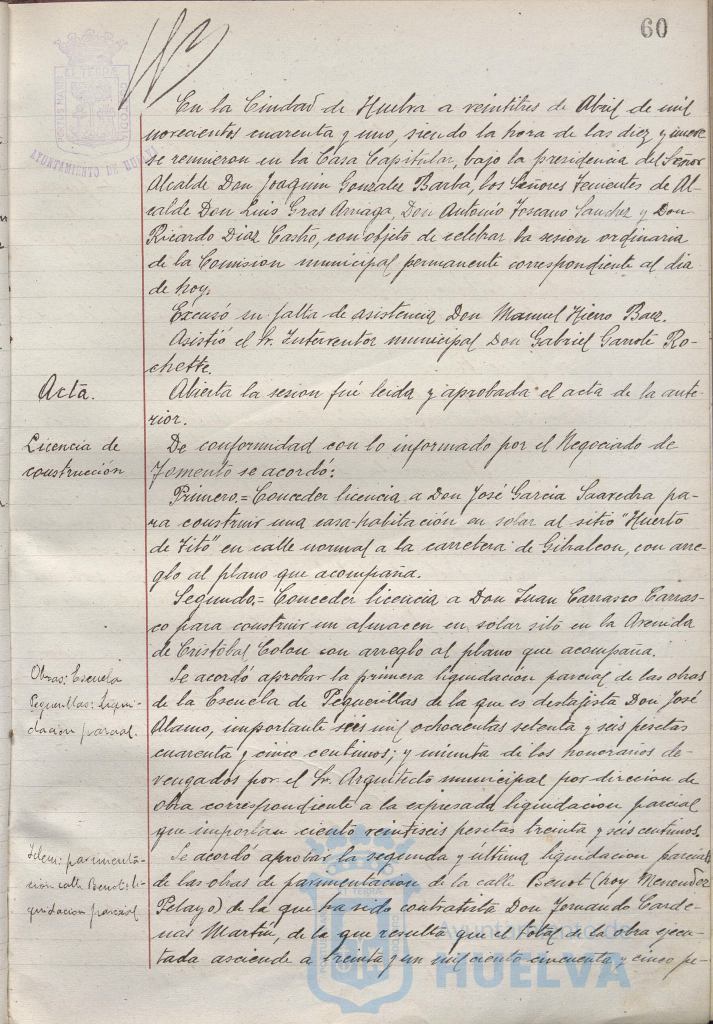 60
En la Ciudad de Huelva a veintitres de Abril de mil
novecientos cuarenta y uno, siendo la hora de las diez y nueve
se reunieron en la Casa Capitular, bajo la presidencia del Señor
Alcalde Don Joaquin Gonzalez Barba, los Señores Tenientes de Al-
calde Don Luis Gras Arriaga, Don Antonio Toscano Sanchez y Don
Ricardo Diaz Castro, con objeto de celebrar la sesion ordinaria
de la Comision municipal permanente correspondiente al dia
de hoy.
Excusó su falta de asistencia Don Manuel Hierro Baez.
Asistió el Sr. Interventor municipal Don Gabriel Garrote Ro-
chette.
Acta.
Abierta la sesion fué leida y aprobada el acta de la ante-
rior.
Licencia de
construcción
De conformidad con lo informado por el Negociado de
Fomento se acordó:
Primero.= Conceder licencia a Don José Garcia Saavedra pa-
ra construir una casa-habitación en solar al sitio "Huerto
de Tito" en calle normal a la carretera de Gibraleon, con arre-
glo al plano que acompaña.
Segundo.= Conceder licencia a Don Juan Carrasco Carras-
co para construir un almacen en solar sito en la Avenida
de Cristóbal Colon con arreglo al plano que acompaña.
Obras: Escuela
Pequerillas: Liqui-
dacion parcial.
Se acordó aprobar la primera liquidacion parcial de las obras
de la Escuela de Pequerillas de la que es destajista Don José
Alamo, importante seis mil ochocientas setenta y seis pesetas
cuarenta y cinco centimos; y minuta de los honorarios de-
vengados por el Sr. Arquitecto municipal por direccion de
obra correspondiente a la expresada liquidacion parcial
que importan ciento veintiseis pesetas treinta y seis centimos.
Idem: pavimenta-
cion calle Benot: li-
quidacion parcial
Se acordó aprobar la segunda y última liquidacion parcial
de las obras de pavimentacion de la calle Benot (hoy Menendez
Pelayo) de la que ha sido contratista Don Fernando Carde-
nas Martin, de la que resulta que el total de la obra ejecu-
tada asciende a treinta y un mil ciento cincuenta y cinco pe-
AYUNTAMIENTO DE HUELVA
Ayuntamiento de
HUELVA